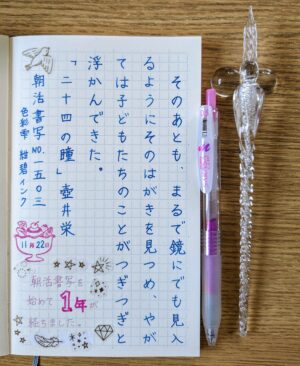 そのあとも、まるで鏡にでも見入
るようにそのはがきを見つめ、やが
ては子どもたちのことがつぎつぎと
浮かんできた。
「二十四の瞳」 壺井栄
朝活書写 NO.一五〇三
色彩雫 紺碧インク
11月22日
朝活書写を
始めて1年が
経ちました。